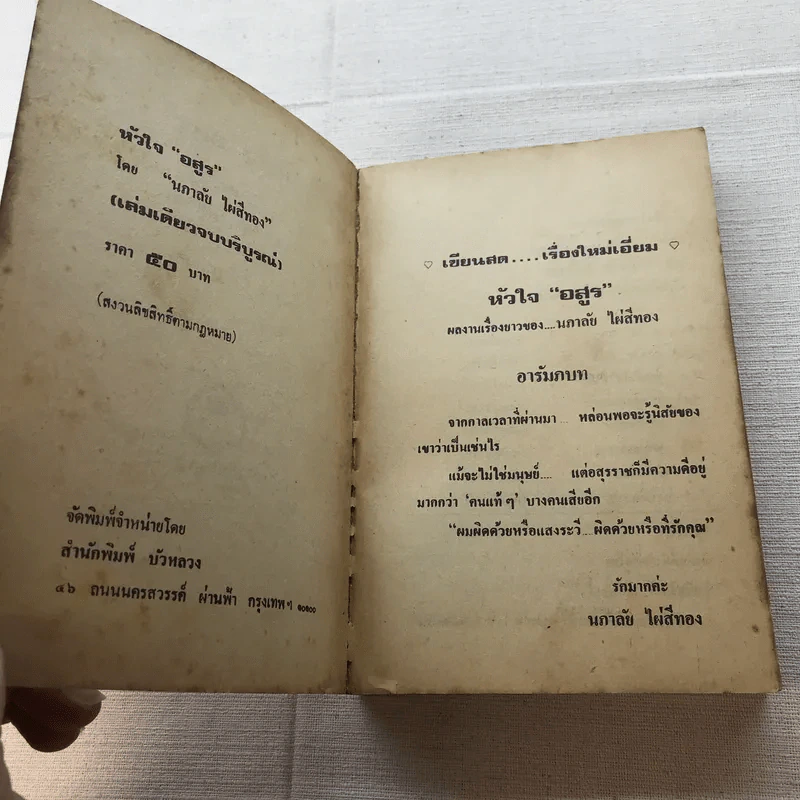 หัวใจ “อสูร”
โดย “นภาลัย ไผ่สีทอง”
(เล่มเดียวจบบริบูรณ์)
ราคา ๕๐ บาท
(สงวนลิขสิทธิ์ตามกฎหมาย)
จัดพิมพ์จำหน่ายโดย
สำนักพิมพ์ บัวหลวง
๔๖ ถนนนครสวรรค์ ผ่านฟ้า กรุงเทพฯ ๑๐๑๐๐
♡ เขียนสด....เรื่องใหม่เอี่ยม ♡
หัวใจ “อสูร”
ผลงานเรื่องยาวของ....นภาลัย ไผ่สีทอง
อารัมภบท
จากกาลเวลาที่ผ่านมา... หล่อนพอจะรู้นิสัยของ
เขาว่าเป็นเช่นไร
แม้จะไม่ใช่มนุษย์.... แต่อสุรราชก็มีความดีอยู่
มากกว่า ‘คนแท้ๆ’ บางคนเสียอีก
“ผมผิดด้วยหรือแสงระวี...ผิดด้วยหรือที่รักคุณ”
รักมากค่ะ
นภาลัย ไผ่สีทอง